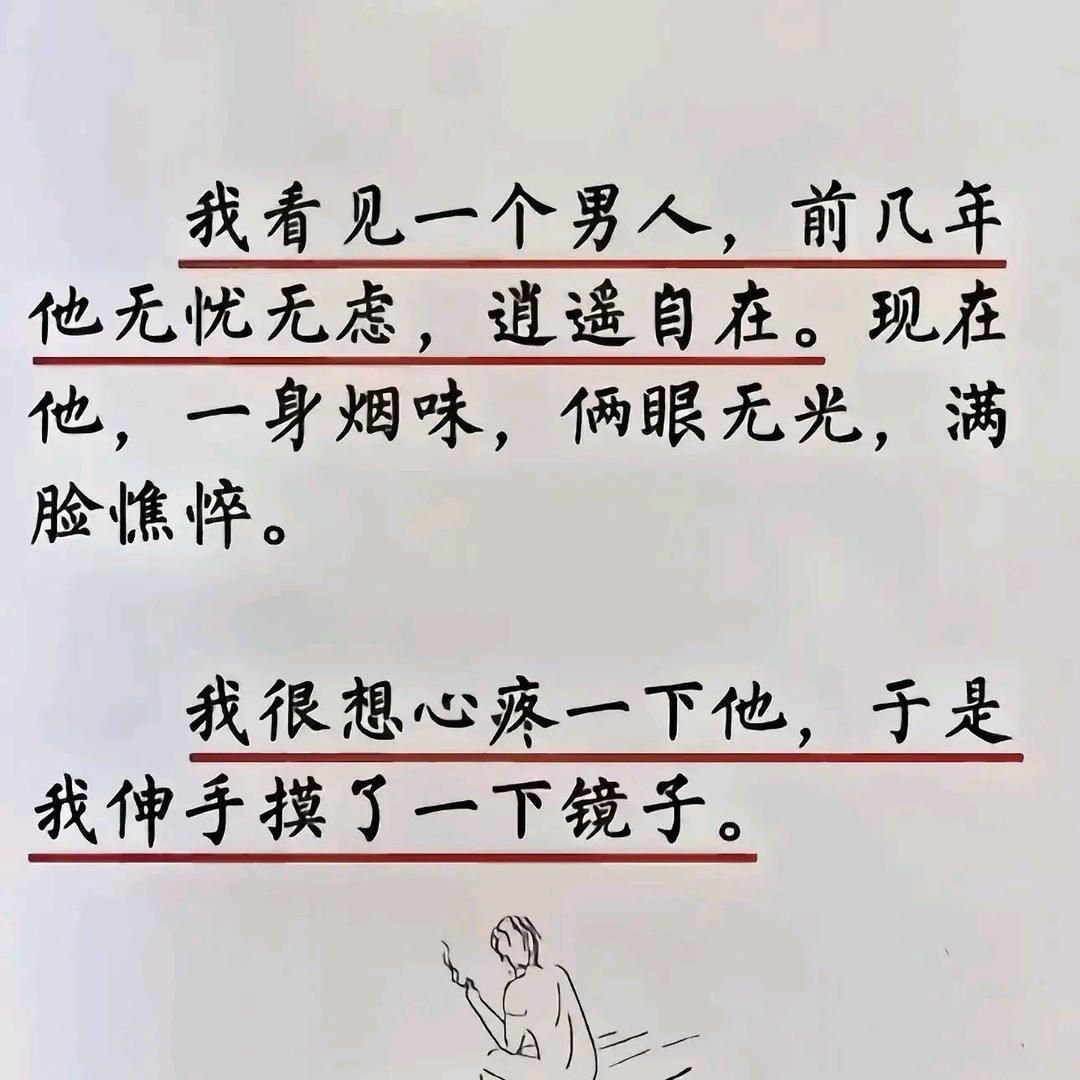 我看见一个男人，前几年
他无忧无虑，逍遥自在。现在
他，一身烟味，俩眼无光，满
脸憔悴。
我很想心疼一下他，于是
我伸手摸了一下镜子。